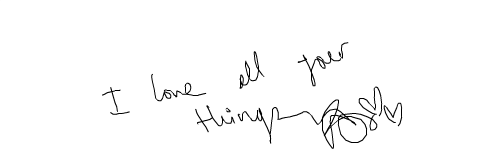 I love all your
things